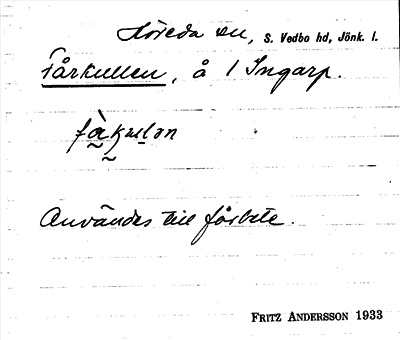 Höreda sn, S. Vedbo hd, Jönk. l.
Fårkullen, å 1 Ingarp.
fåkulən
Användes till fårbete.
FRITZ ANDERSSON 1933